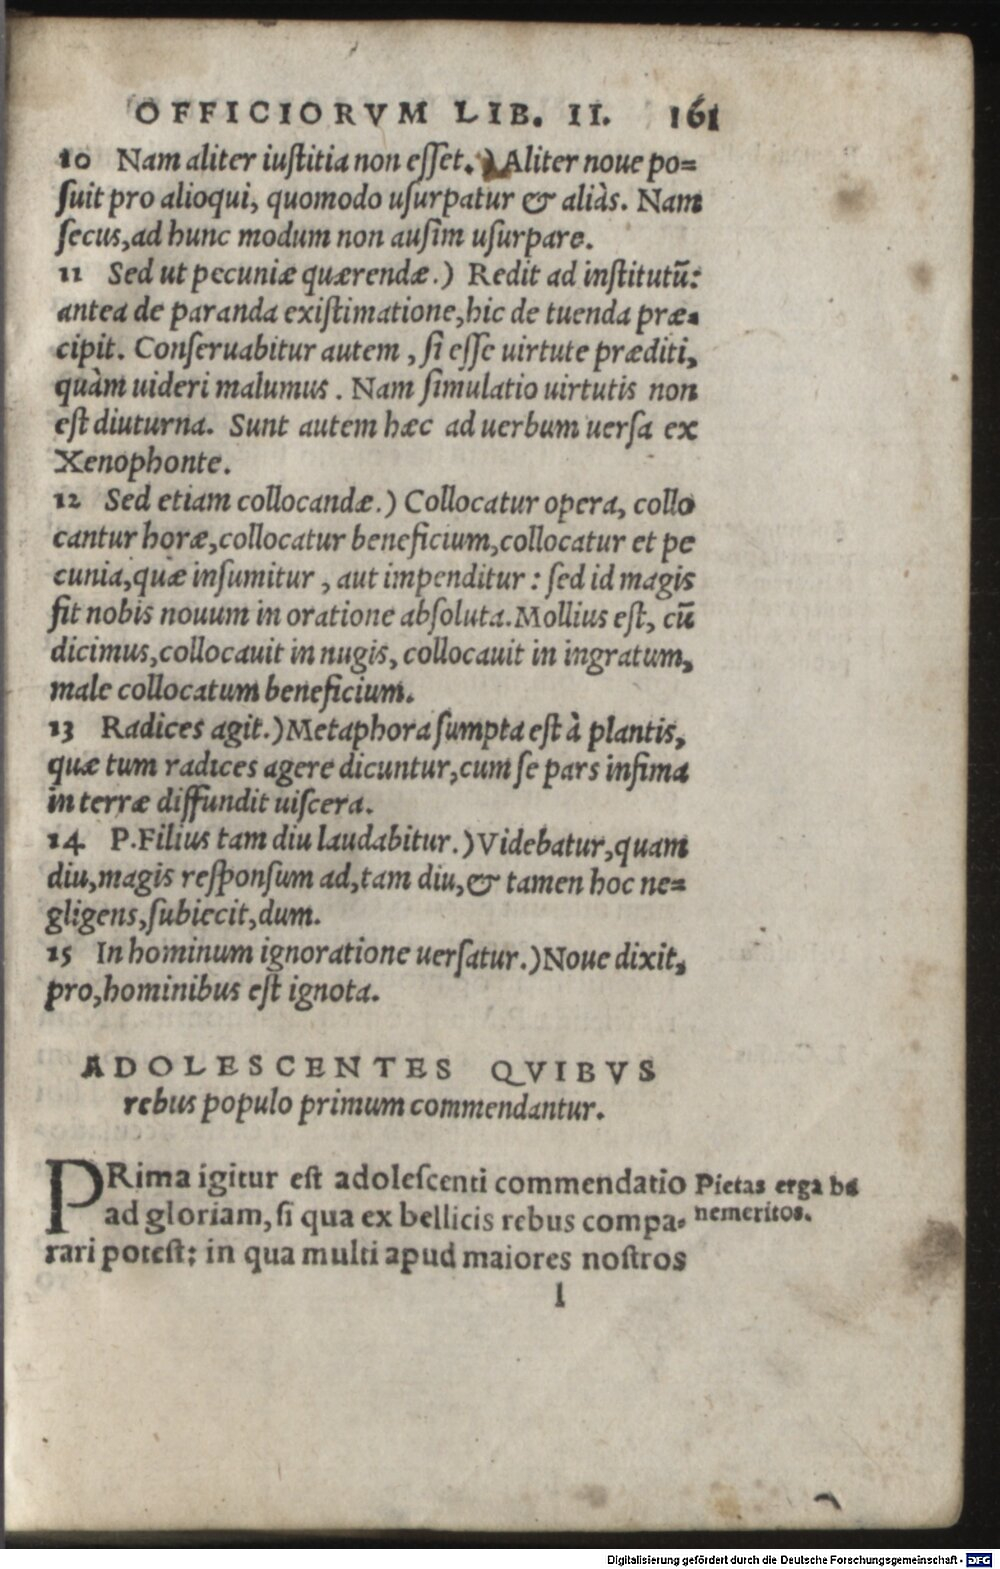 OFFICIORVM LIB. II. 161
10 Nam aliter iuſtitia non eſſet.) Aliter noue po=
ſuit pro alioqui, quomodo uſurpatur & aliàs. Nam
ſecus, ad hunc modum non auſim uſurpare.
11 Sed ut pecuniæ quærendæ.) Redit ad inſtitutū:
antea de paranda exiſtimatione, hic de tuenda præ=
cipit. Conſeruabitur autem, ſi eſſe uirtute præditi,
quàm uideri malumus. Nam ſimulatio uirtutis non
eſt diuturna. Sunt autem hæc ad uerbum uerſa ex
Xenophonte.
12 Sed etiam collocandæ.) Collocatur opera, collo
cantur horæ, collocatur beneficium, collocatur et pe
cunia, quæ inſumitur, aut impenditur: ſed id magis
fit nobis nouum in oratione abſoluta. Mollius eſt, cū
dicimus, collocauit in nugis, collocauit in ingratum,
male collocatum beneficium.
13 Radices agit.) Metaphora ſumpta eſt à plantis,
quæ tum radices agere dicuntur, cum ſe pars infima
in terræ diffundit uiſcera.
14 P. Filius tam diu laudabitur.) Videbatur, quam
diu, magis reſponſum ad, tam diu, & tamen hoc ne=
gligens, ſubiecit, dum.
15 In hominum ignoratione uerſatur.) Noue dixit,
pro, hominibus eſt ignota.
ADOLESCENTES QVIBVS
rebus populo primum commendantur.
PRima igitur eſt adoleſcenti commendatio
ad gloriam, ſi qua ex bellicis rebus compa=
rari poteſt: in qua multi apud maiores noſtros
Pietas erga be
nemeritos.
l
Digitalisierung gefördert durch die Deutsche Forschungsgemeinschaft - DFG